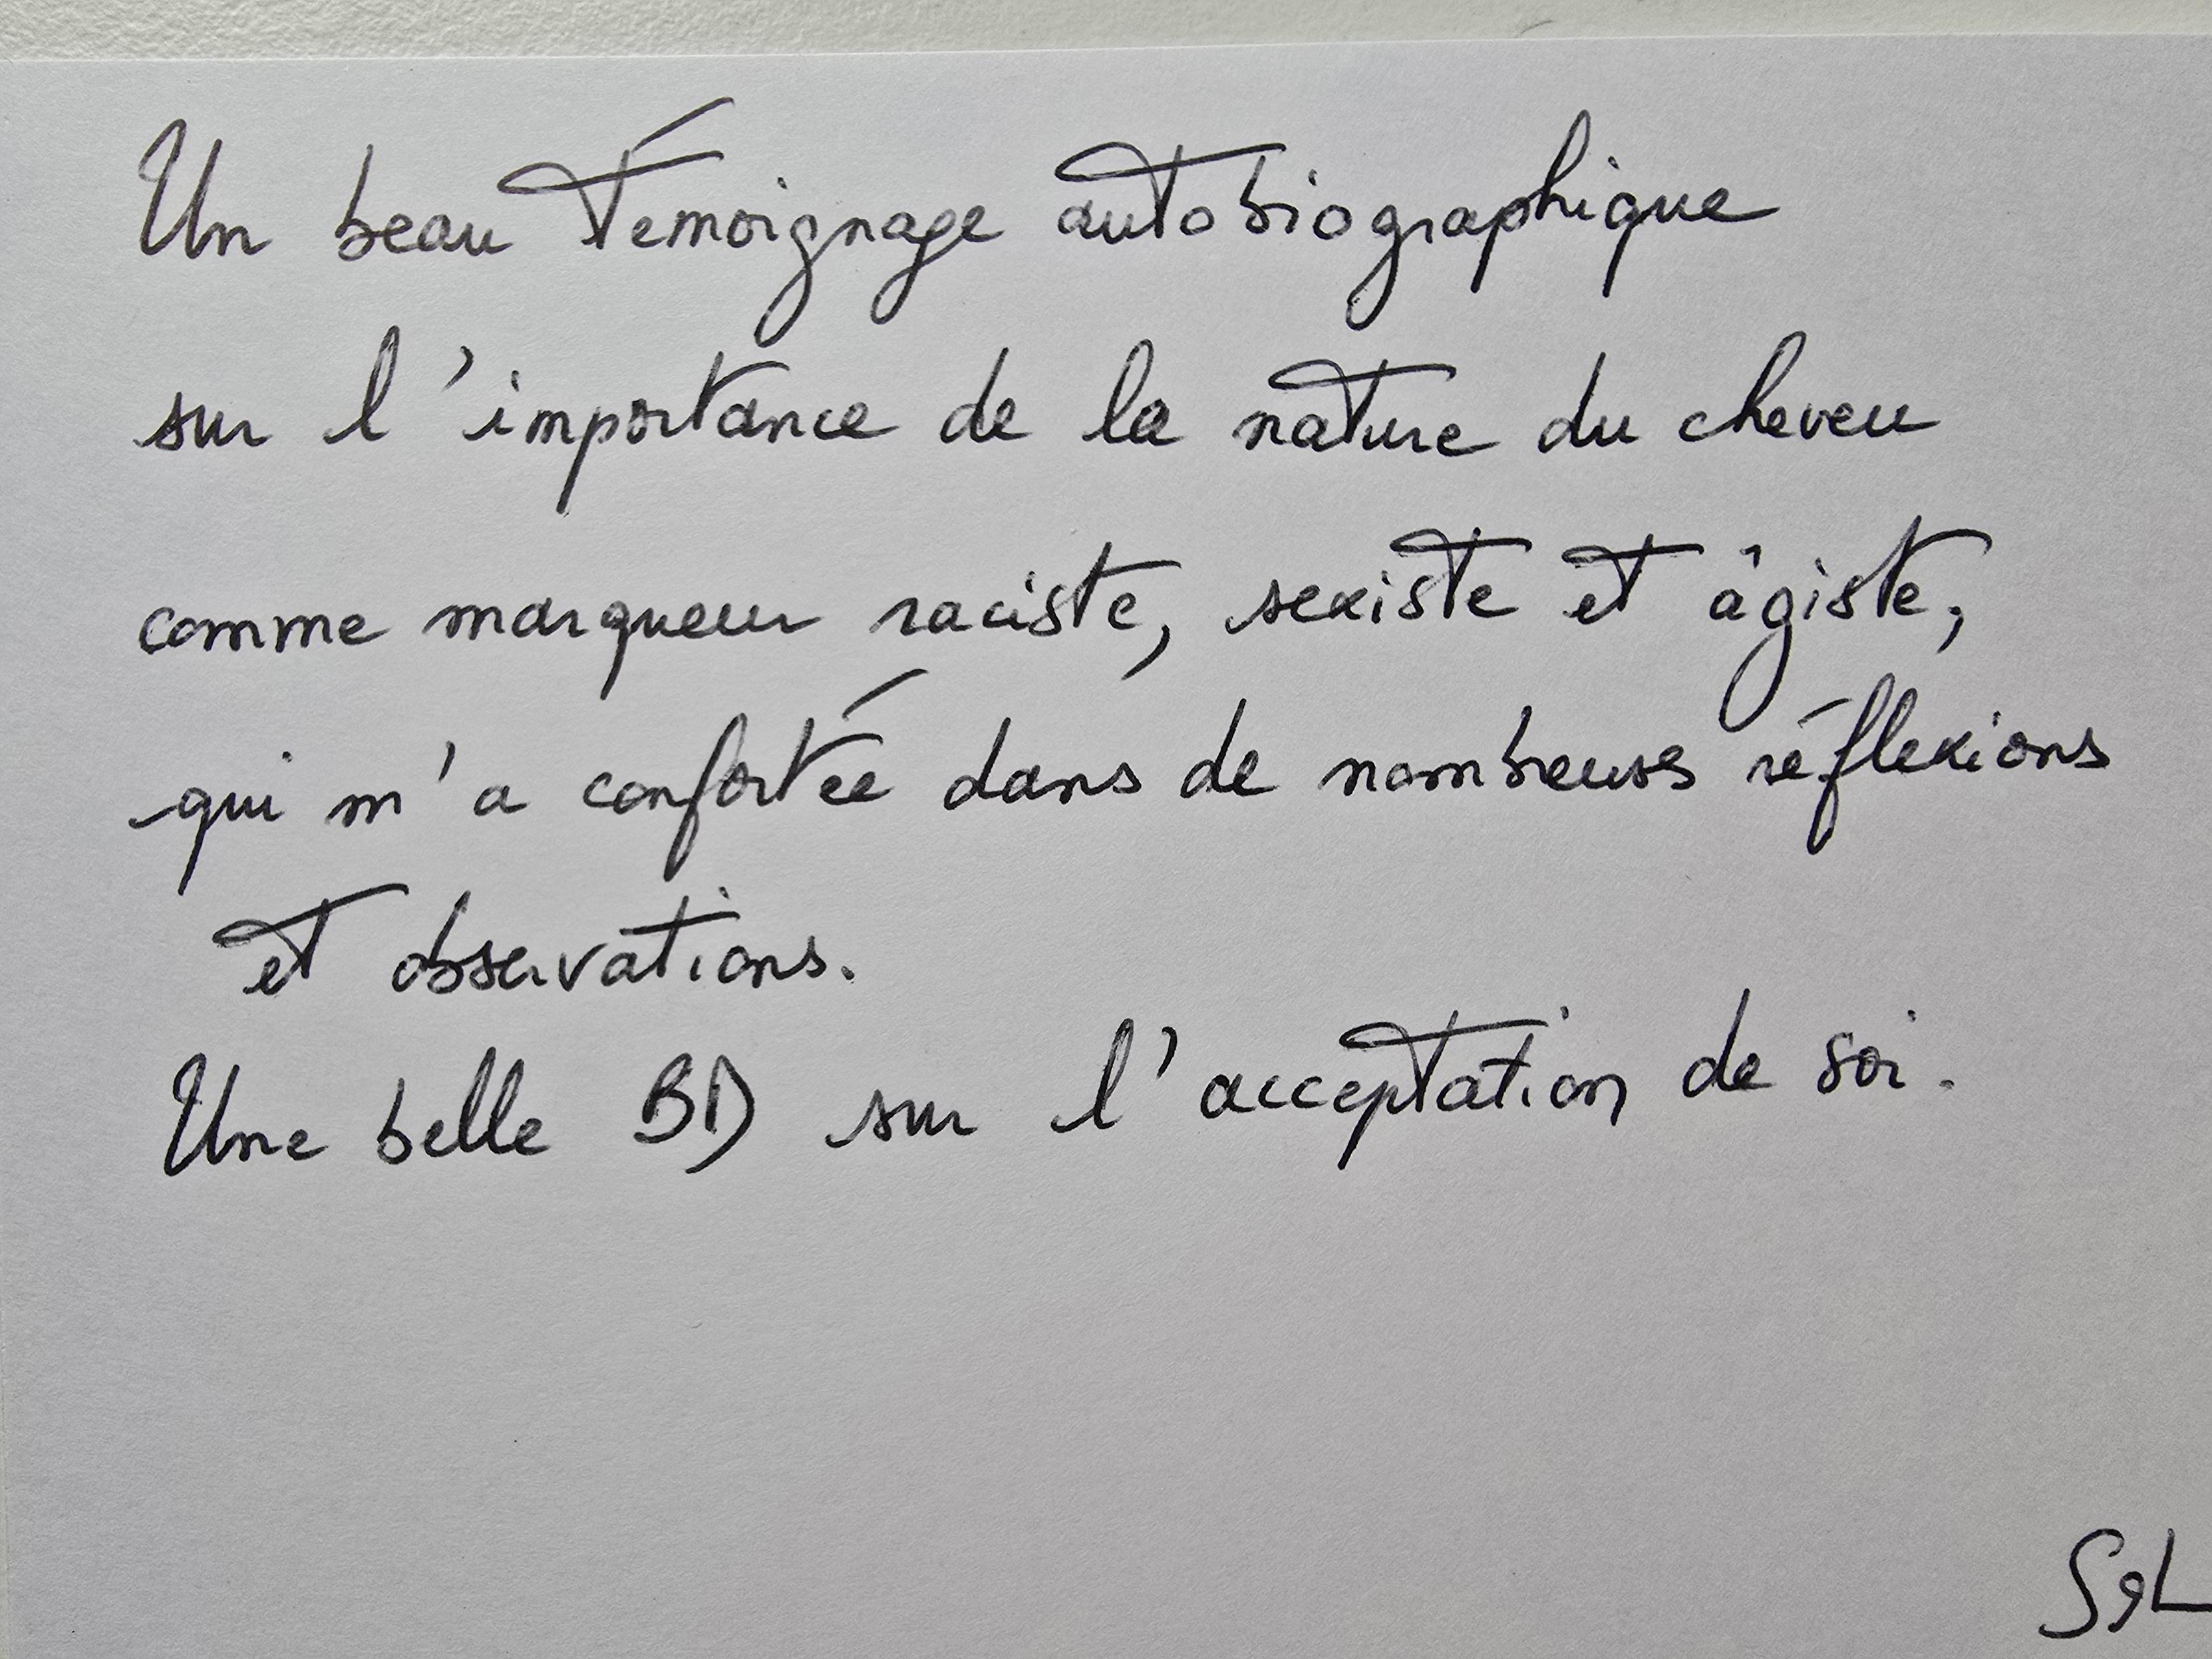 Un beau témoignage autobiographique
sur l'importance de la nature du cheveu
comme marqueur raciste, sexiste et âgiste,
qui m'a confortée dans de nombreuses réflexions
et observations.
Une belle BD sur l'acceptation de soi.